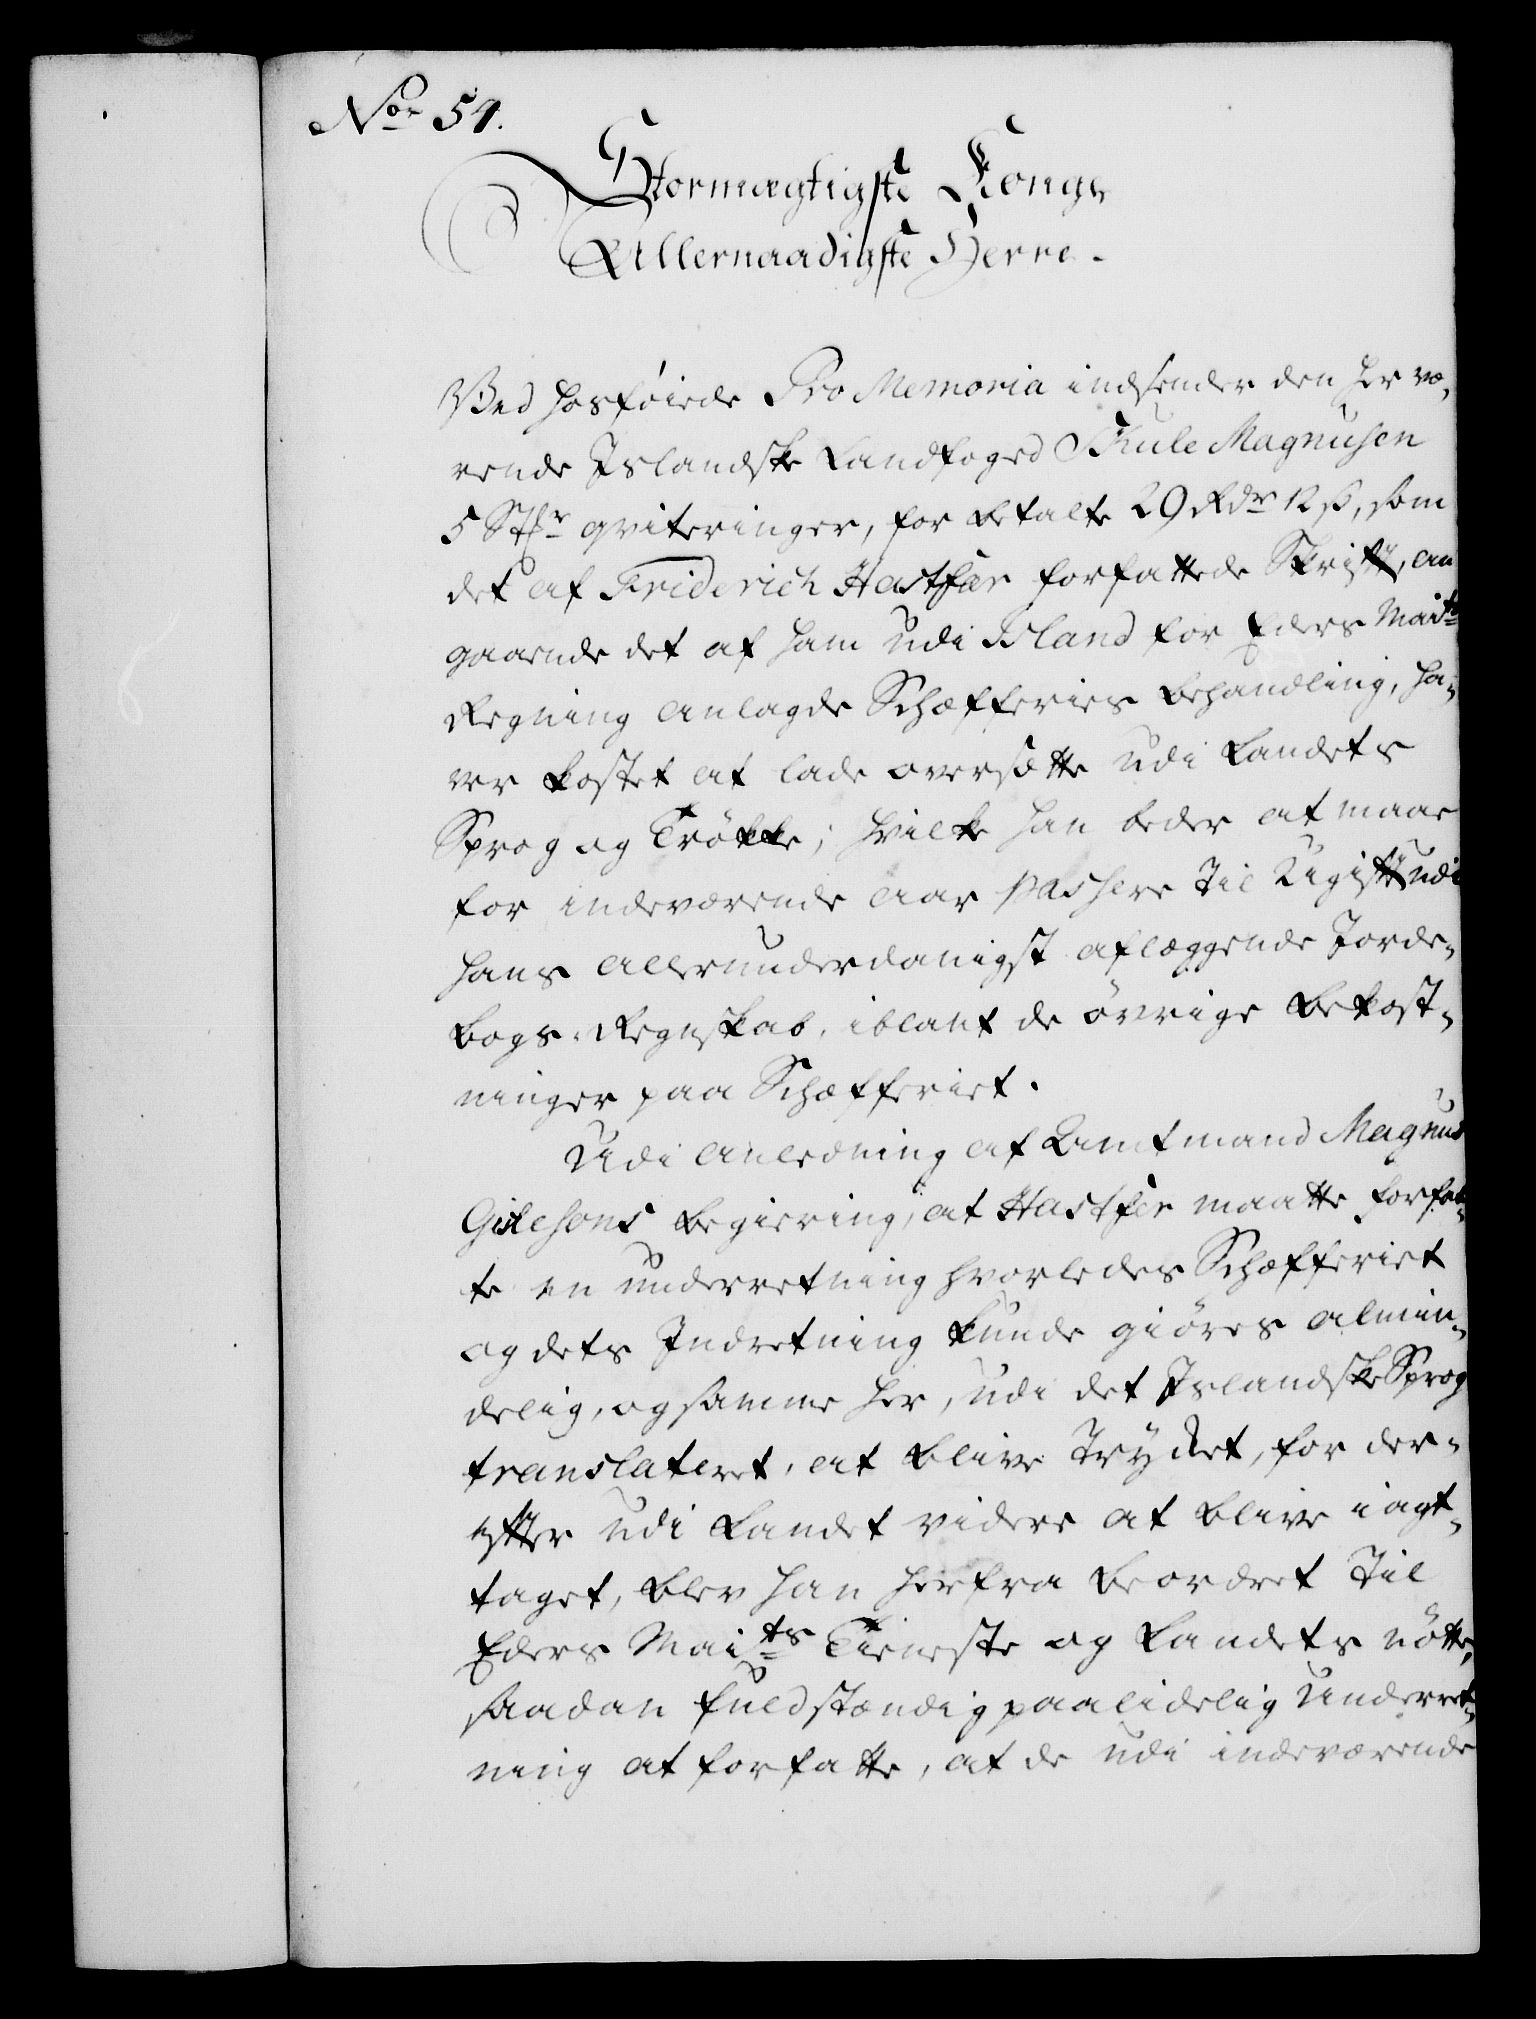 Nor 54.
Stormægtigste Konge
Allernaadigste Herre.
Ved hosføiede Pro Memoria indsender den her væ-
rende Islandske Landfoged Skule Magnusen
5 Stkr qviteringer, for betalte 29 Rdr 12 ß, som
det af Friderich Hastfær forfattede Skrift, an
gaaende det af ham udi Island for Eders Maits
Regning anlagde Schæfferies behandling, ha-
ver kostet at lade oversætte udi Landets
Sprog og Trökke; hvilke han beder at maae
for indeværende aar passere til Udgift udi
hans allerunderdanigst aflæggende Jorde-
bogs-Regnskab, iblant de övrige bekost-
ninger paa Schæfferiet.
Udi anledning af Amtmand Magnus
Gislesons begiering, at Hastfer maatte forfat-
te en underretning hvorledes Schæfferiet
og dets Indretning kunde giöres almin-
delig, og samme her, udi det Islandske Sprog
translateret, at blive Trykket, for der-
efter udi Landet videre at blive iagt-
taget, blev han herfra beordret til
Eders Maits Tieneste og Landets nötte,
saadan fuldstændig paalidelig Underret-
ning at forfatte, at de udi indeværende